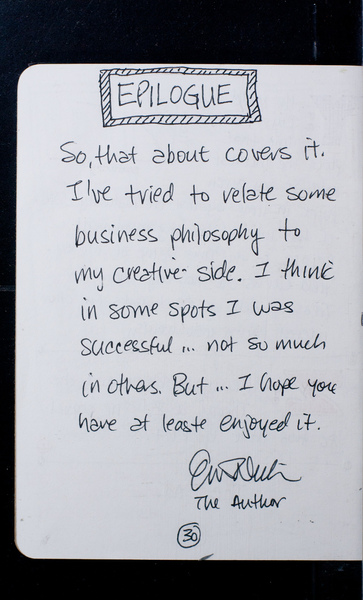 EPILOGUE
So, that about covers it.
I've tried to relate some
business philosophy to
my creative side. I think
in some spots I was
successful ... not so much
in others. But ... I hope you
have at leaste enjoyed it.
The Author
30